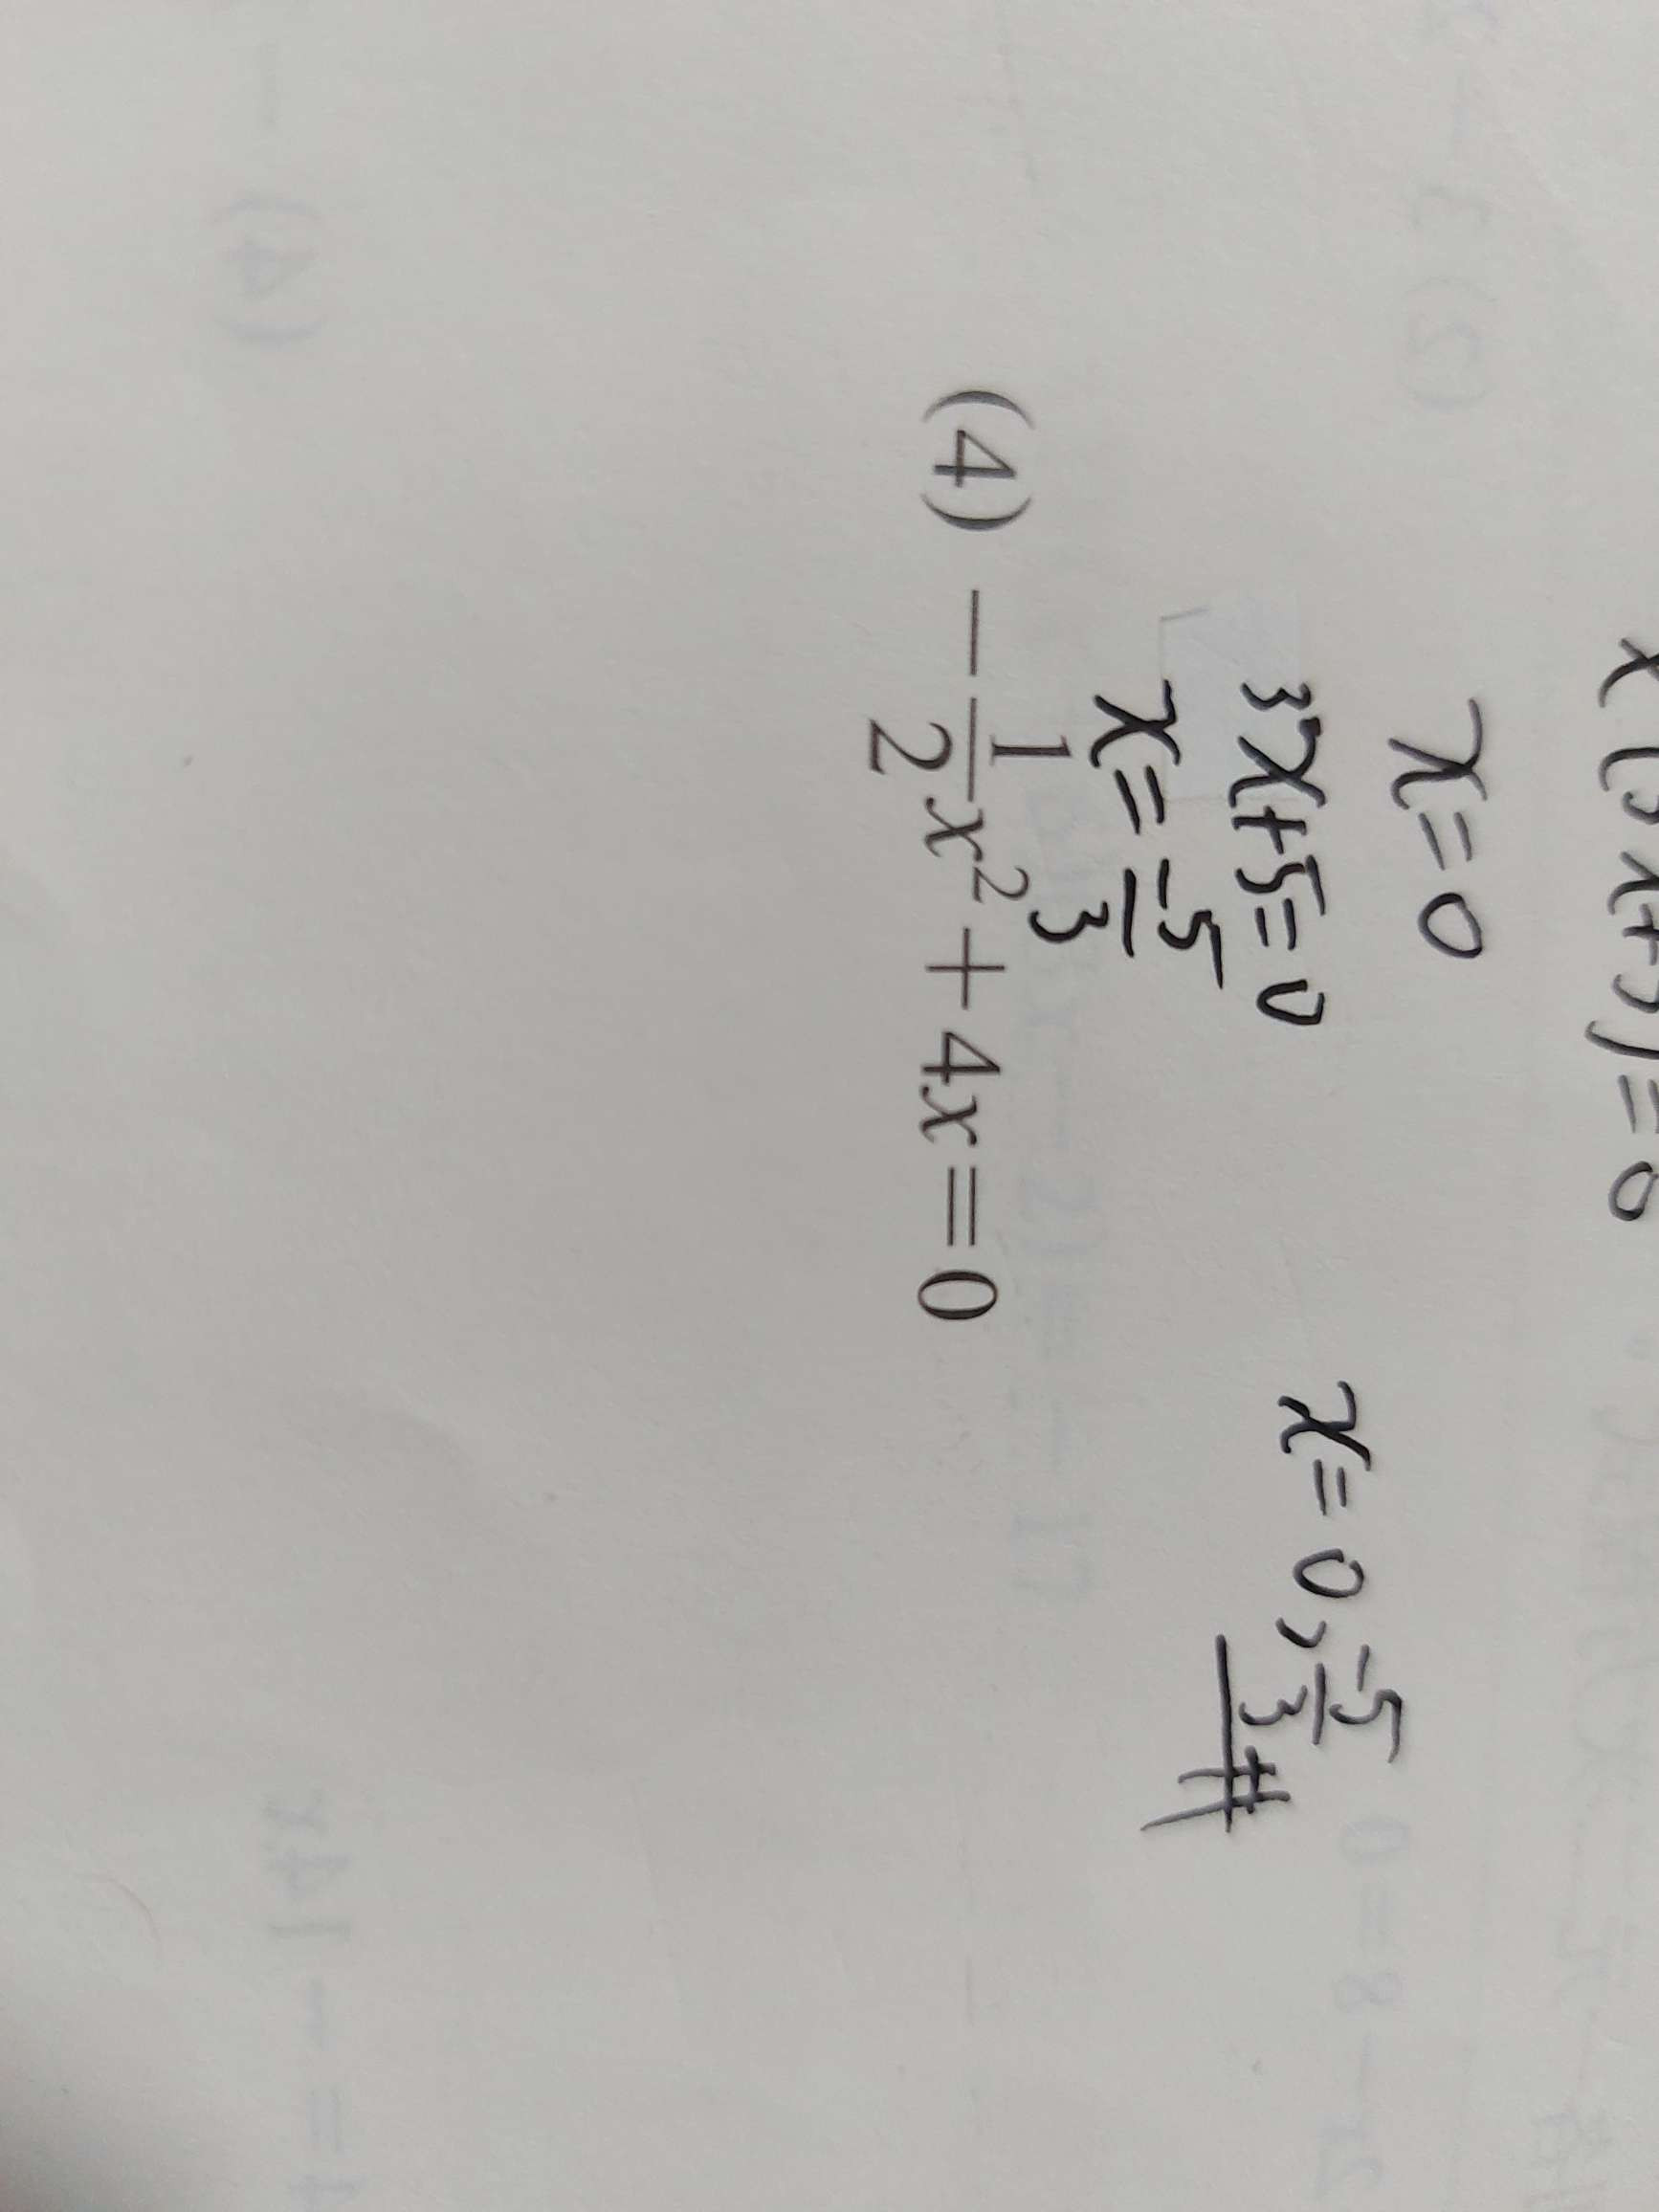 x(3x+5)=0
x=0
3x+5=0
x=-5/3
x=0,-5/3 #
(4) -1/2x²+4x=0